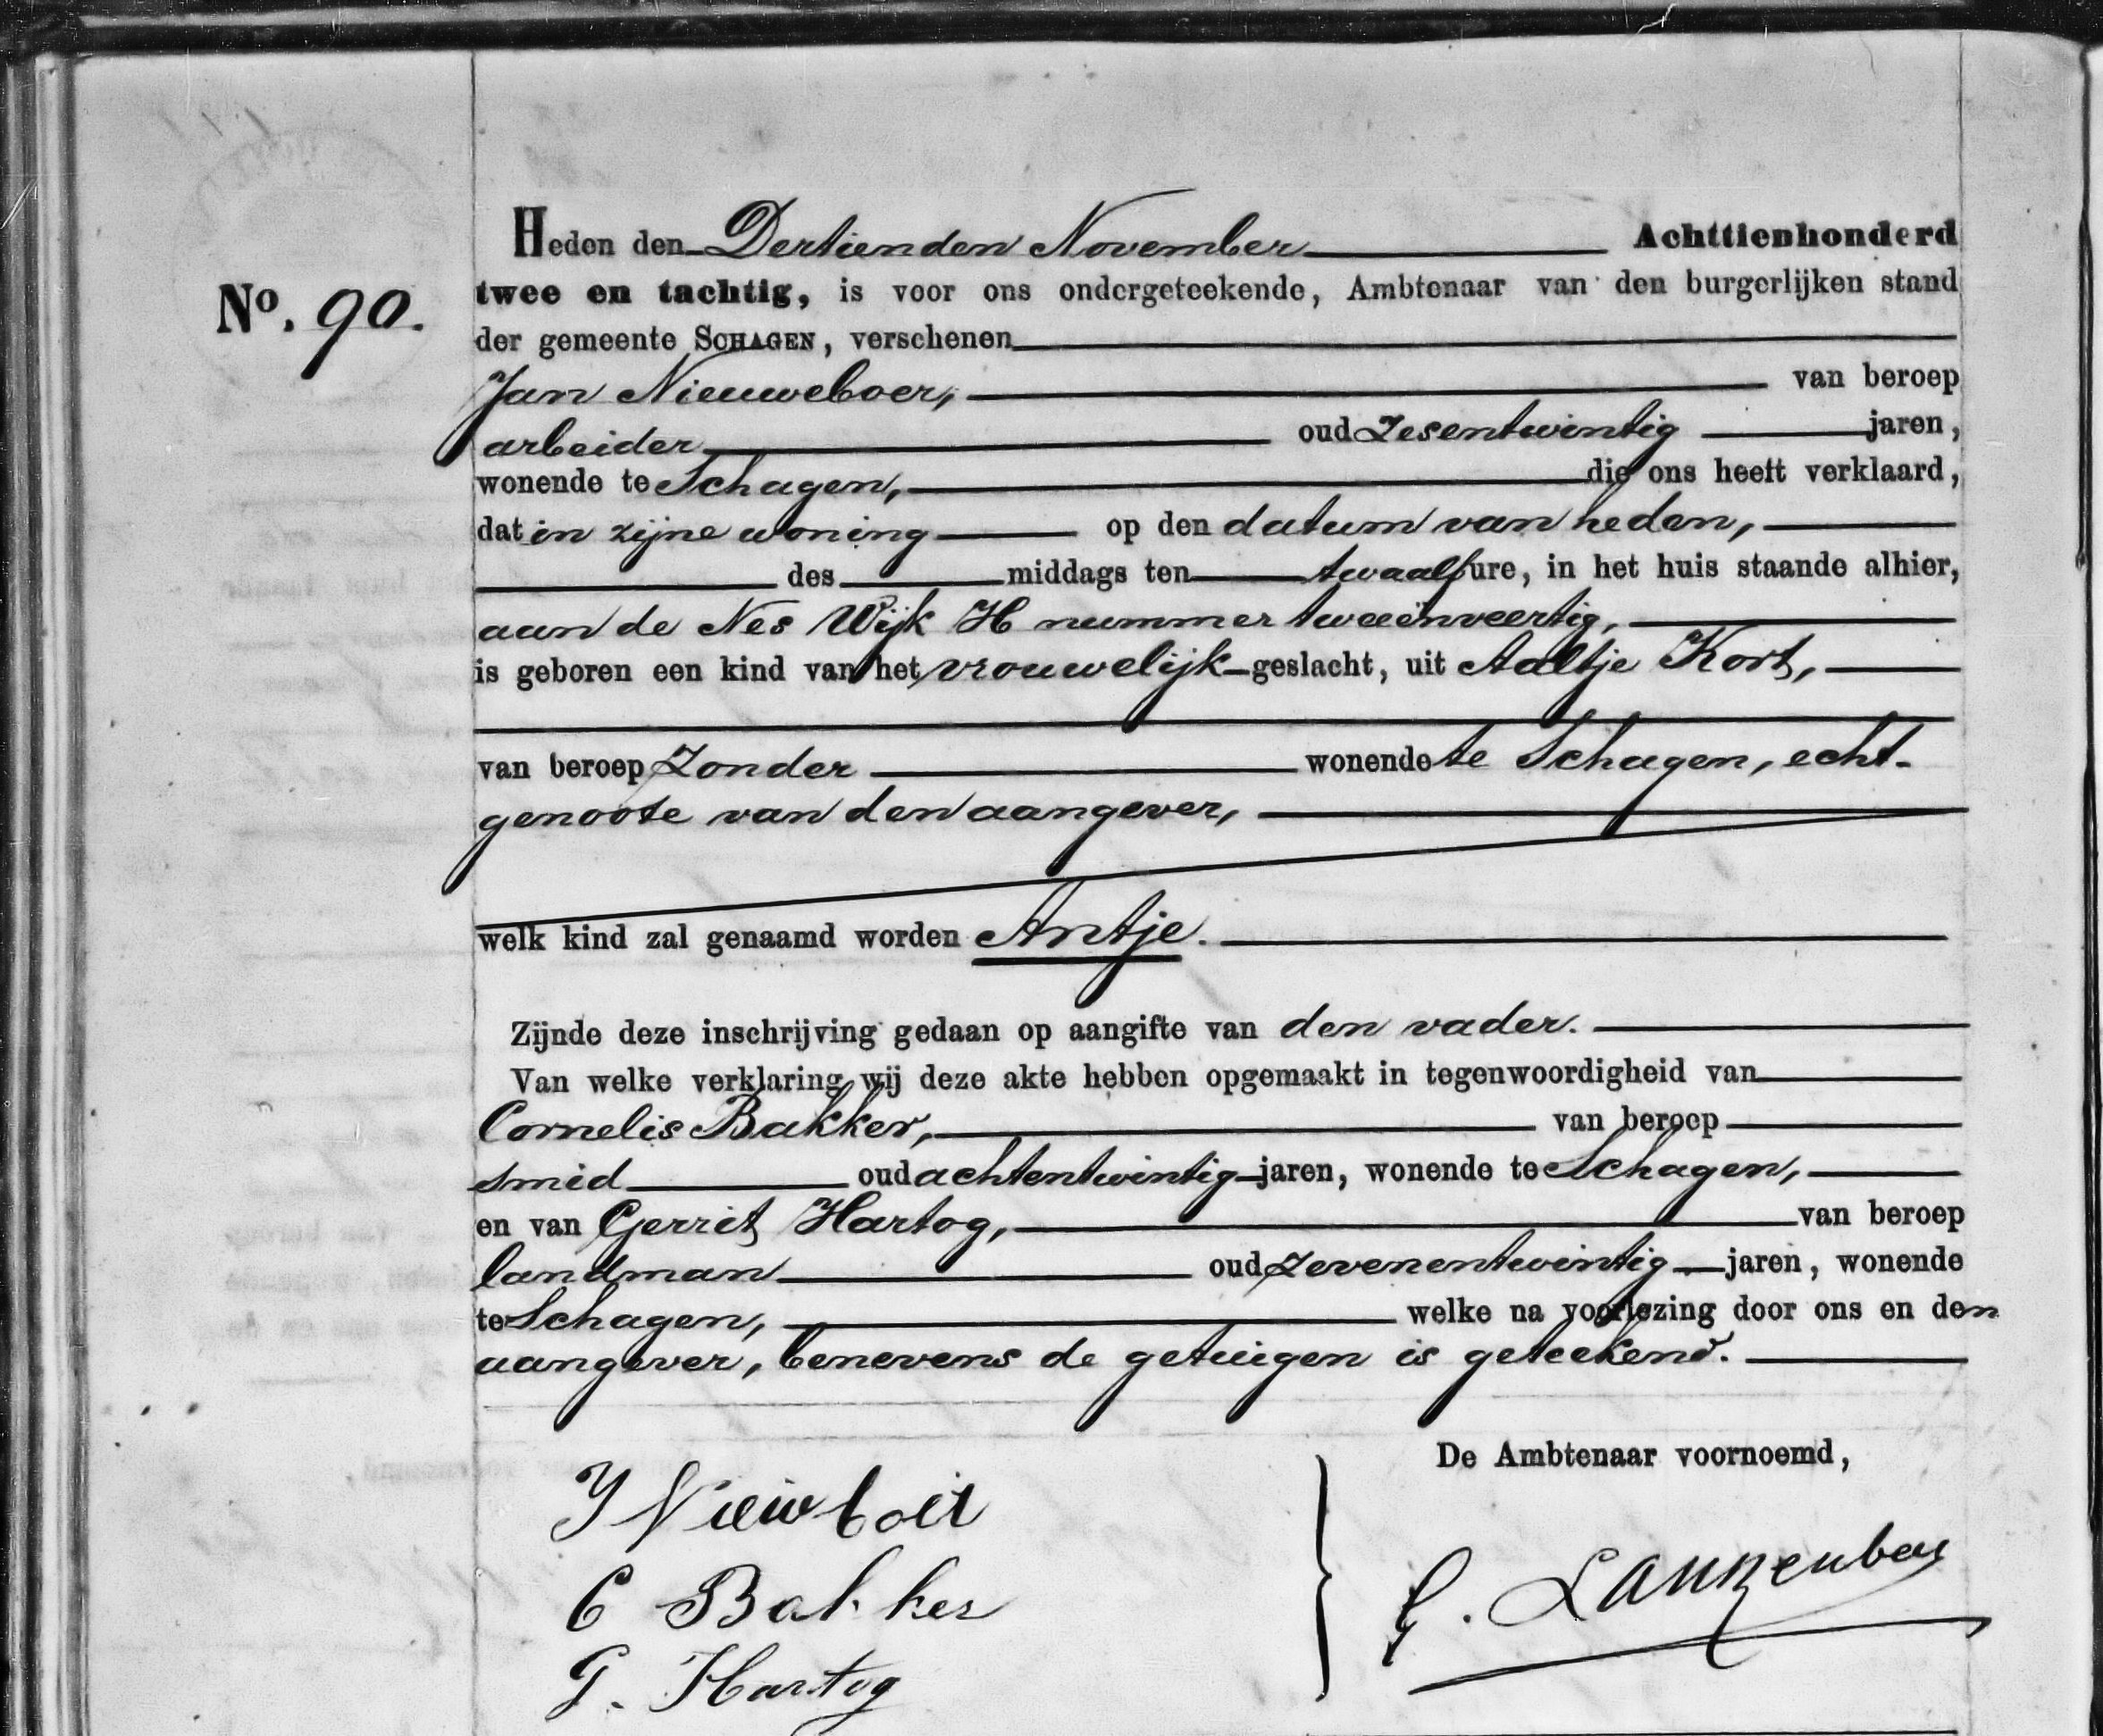 No. 90.
Heden den Dertienden November Achttienhonderd
twee en tachtig, is voor ons ondergeteekende, Ambtenaar van den burgerlijken stand
der gemeente SCHAGEN, verschenen
Jan Nieuweboer, van beroep
arbeider oud zesentwintig jaren,
wonende te Schagen, die ons heeft verklaard,
dat in zijne woning op den datum van heden,
des middags ten twaalf ure, in het huis staande alhier,
aan de Nes Wijk H nummer tweeënveertig,
is geboren een kind van het vrouwelijk geslacht, uit Aaltje Kort,
van beroep Zonder wonende te Schagen, echt-
genoote van den aangever,
welk kind zal genaamd worden Antje.
Zijnde deze inschrijving gedaan op aangifte van den vader.
Van welke verklaring wij deze akte hebben opgemaakt in tegenwoordigheid van
Cornelis Bakker, van beroep
smid oud achtentwintig jaren, wonende te Schagen,
en van Gerrit Hartog, van beroep
landman oud zevenentwintig jaren, wonende
te Schagen, welke na voorlezing door ons en den
aangever, benevens de getuigen is geteekend.
De Ambtenaar voornoemd,
J
C Bakker
G. Hartog
G.